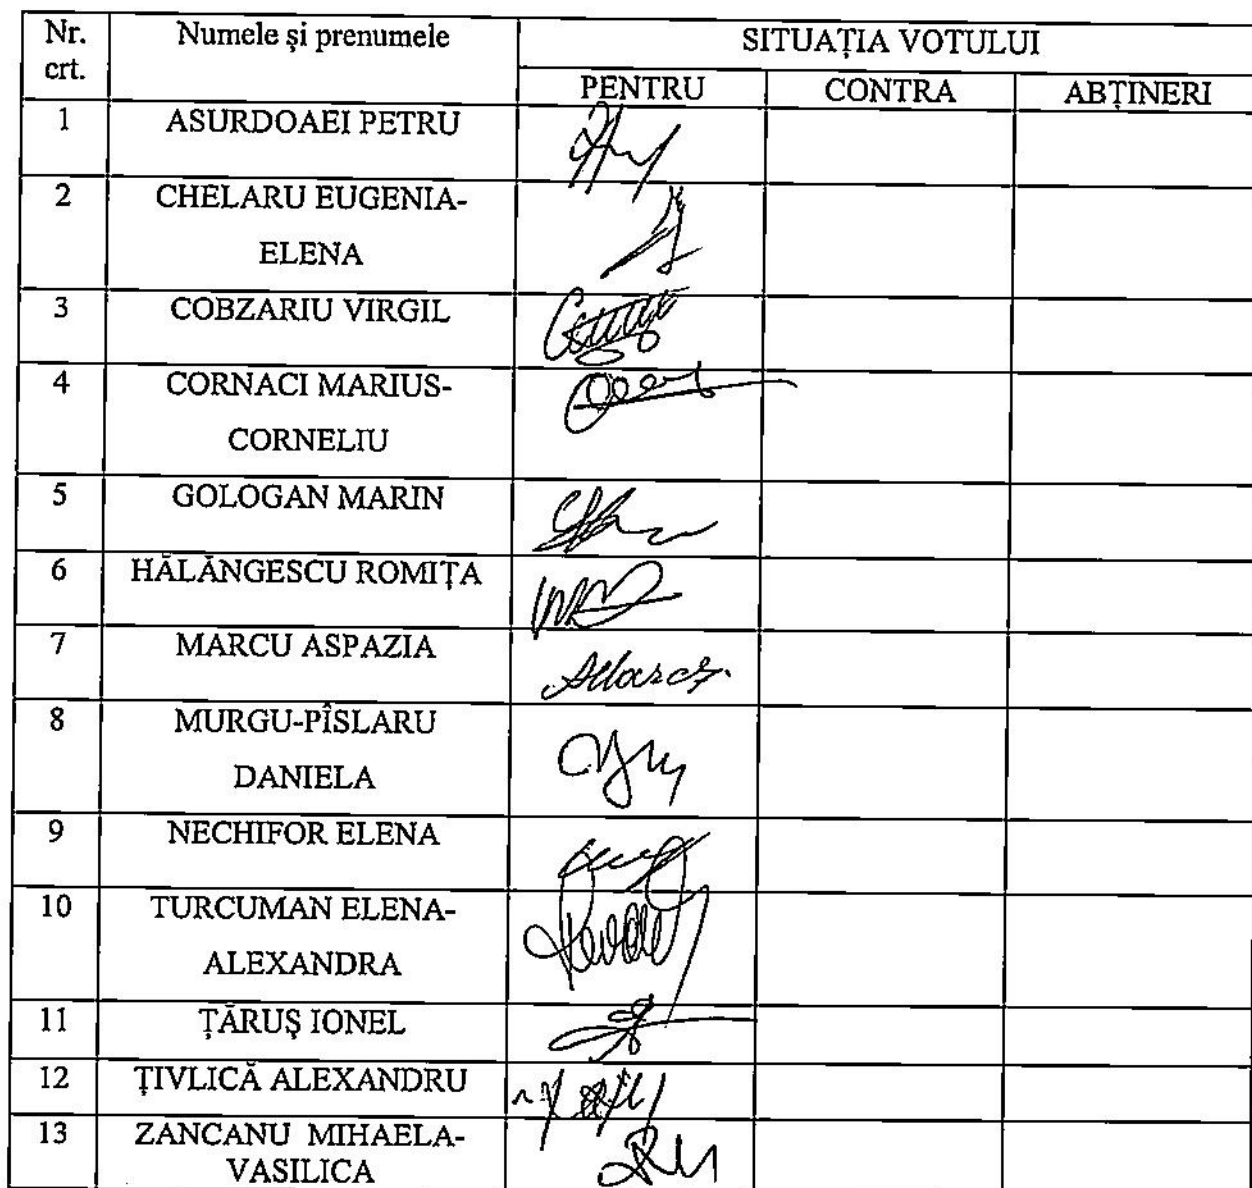 Nr. crt. Numele şi prenumele SITUAŢIA VOTULUI
PENTRU CONTRA ABŢINERI
1 ASURDOAEI PETRU
2 CHELARU EUGENIA-
ELENA
3 COBZARIU VIRGIL
4 CORNACI MARIUS-
CORNELIU
5 GOLOGAN MARIN
6 HĂLĂNGESCU ROMIŢA
7 MARCU ASPAZIA
8 MURGU-PÎSLARU
DANIELA
9 NECHIFOR ELENA
10 TURCUMAN ELENA-
ALEXANDRA
11 ŢĂRUŞ IONEL
12 ŢIVLICĂ ALEXANDRU
13 ZANCANU MIHAELA-
VASILICA